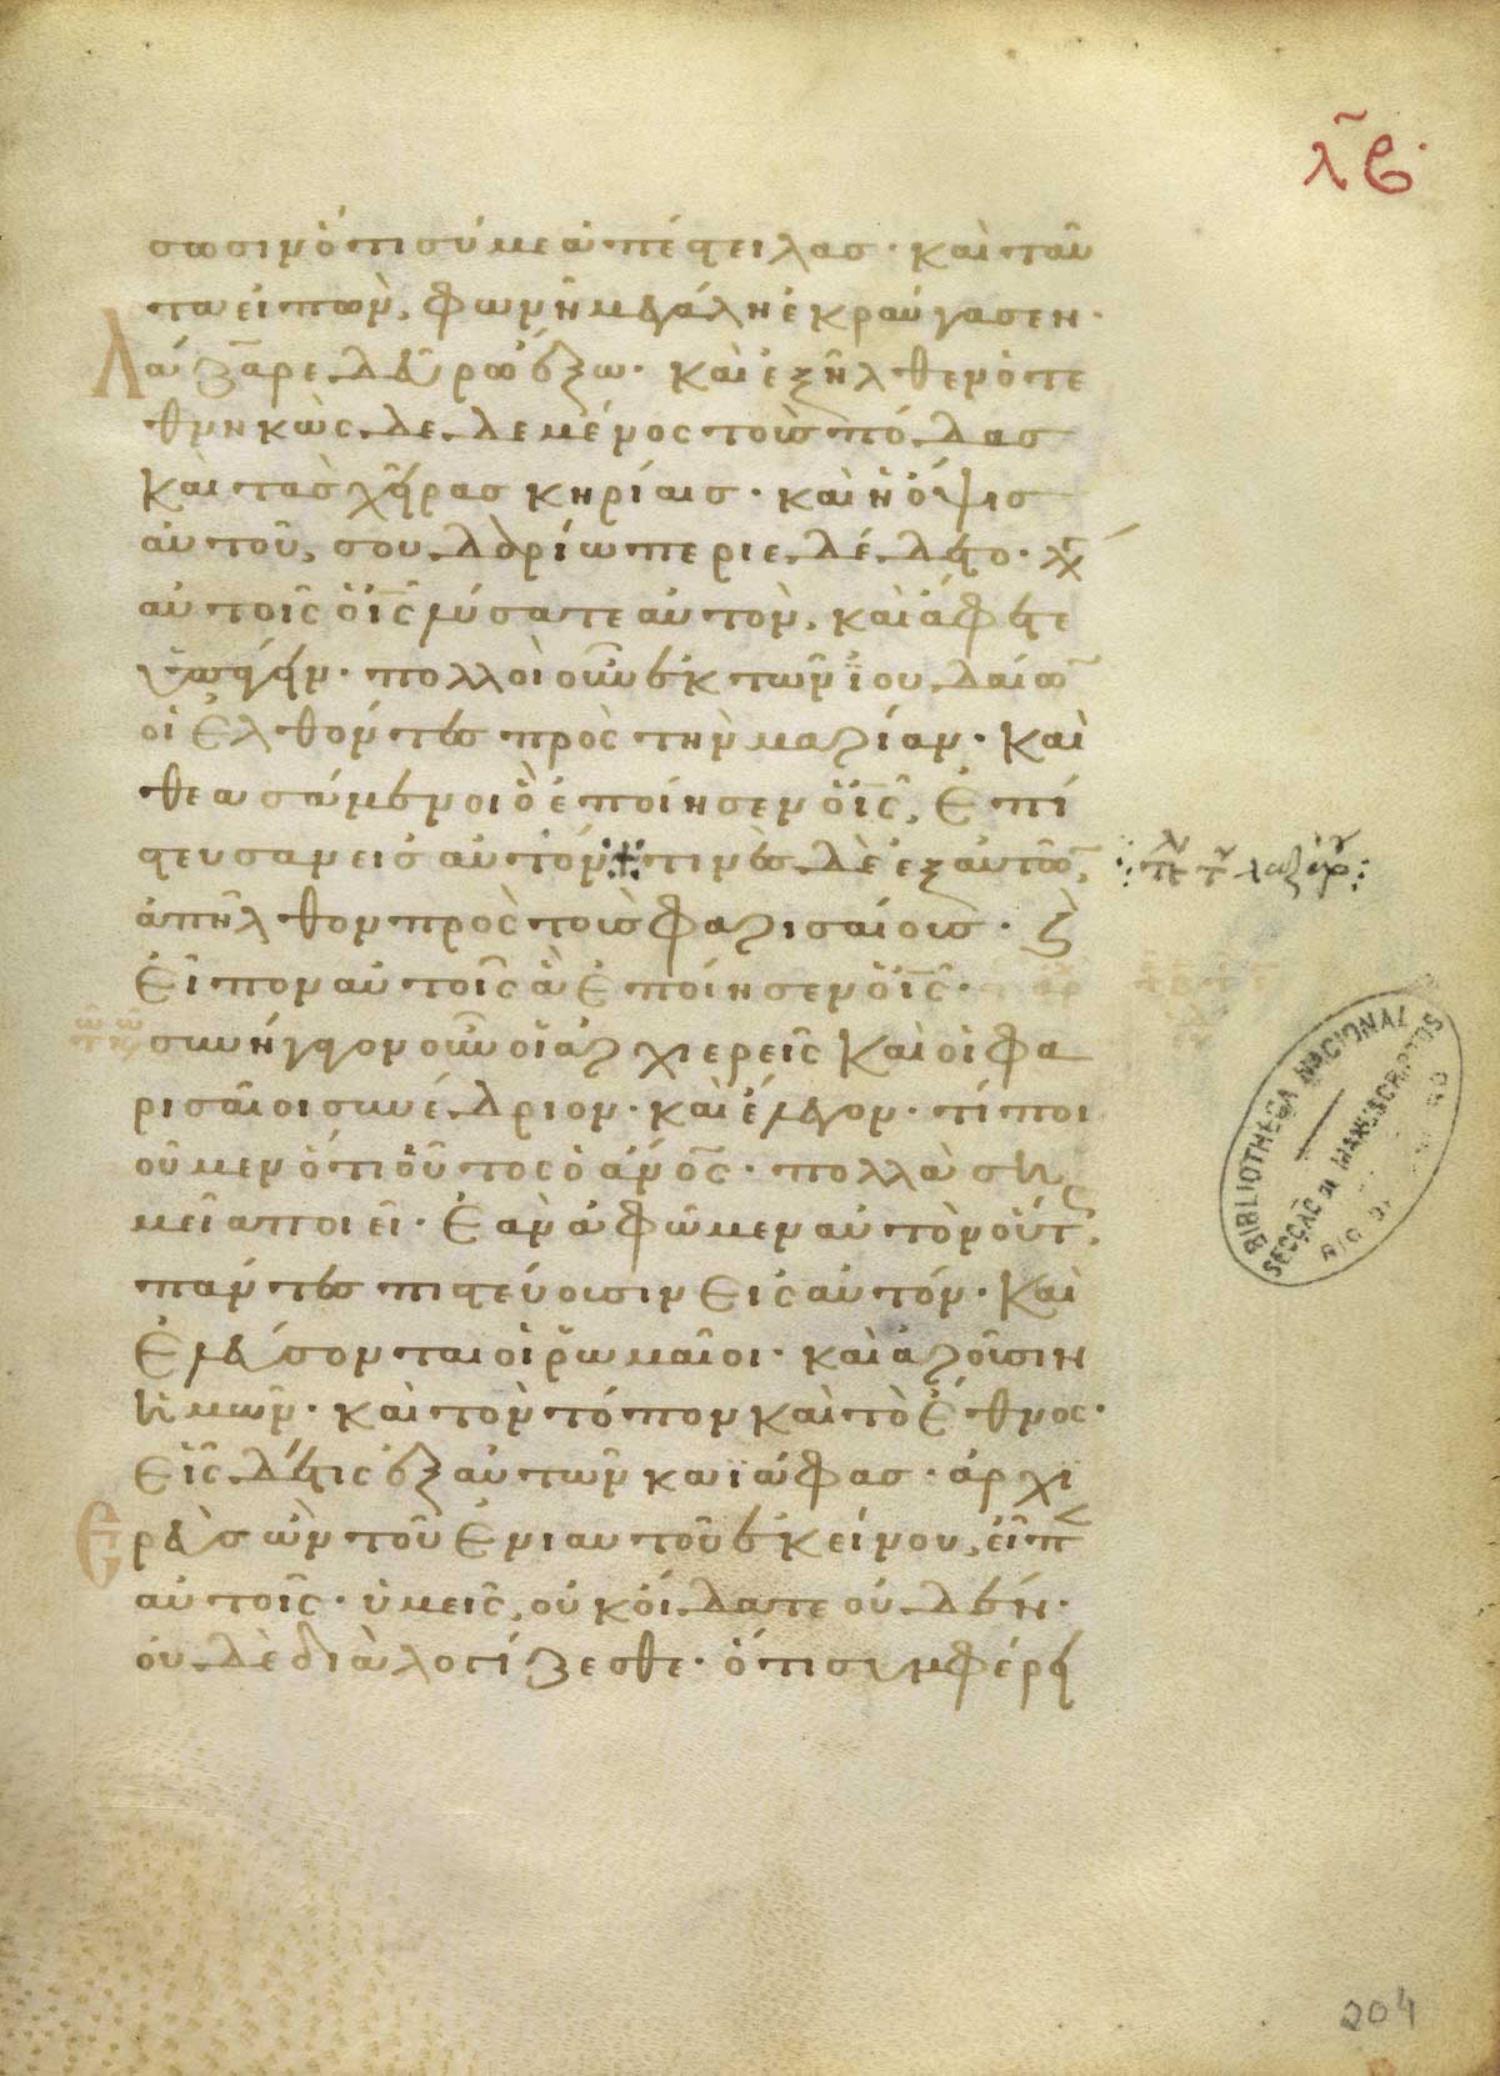 λ̃ε·
σωσιν ὅτι σύ με ἀπέστειλας· καὶ ταῦ
τα εἰπὼν, φωνῆ μεγάλη ἐκραύγασεν·
Λάζαρε δεῦρο ἔξω· καὶ ἐξῆλθεν ὁ τε
θνηκὼς δεδεμένος τοὺς πόδας
καὶ τὰς χεῖρας κηρίαις· καὶ ἡ ὄψις
αὐτοῦ, σουδαρίω περιεδέδετο· λέγει
αὐτοῖς ὁ ι̅ς̅ λύσατε αὐτὸν, καὶ ἄφετε
ὑπάγειν· πολλοὶ οὖν ἐκ τῶν ἰουδαίω̅
οἱ ἐλθόντες πρὸς τὴν μαρίαν· καὶ
θεασάμενοι ὃ ἐποίησεν ὁ ι̅ς̅, ἐπί
στευσαν εἰς αὐτόν ⁜ τινὲς δὲ ἐξ αὐτῶ̅,
ἀπῆλθον πρὸς τοὺς φαρισαίους· κ̀
εἶπον αὐτοῖς ἃ ἐποίησεν ὁ ι̅ς̅·
συνήγαγον οὖν οἱ ἀρχιερεῖς καὶ οἱ φα
ρισαῖοι συνέδριον· καὶ ἔλεγον· τί ποι
οῦμεν ὅτι οὗτος ὁ α̅ν̅ο̅ς̅· πολλὰ ση
μεῖα ποιεῖ· ἐὰν ἀφῶμεν αὐτὸν οὕτ,
πάντες πιστεύουσιν εἰς αὐτόν· καὶ
ἐλεύσονται οἱ ῥωμαῖοι· καὶ ἀροῦσιν
ἡμῶν· καὶ τὸν τόπον καὶ τὸ ἔθνος·
εἷς δέ τις ἐξ αὐτῶν καϊάφας· ἀρχι
ερεὺς ὢν τοῦ ἐνιαυτοῦ ἐκείνου, εἶπ
αὐτοῖς· ὑμεῖς, οὐκ οἴδατε οὐδέν·
οὐδὲ διαλογίζεσθε· ὅτι συμφέρει
BIBLIOTHECA NACIONAL
SECÇÃO DE MANUSCRIPTOS
204